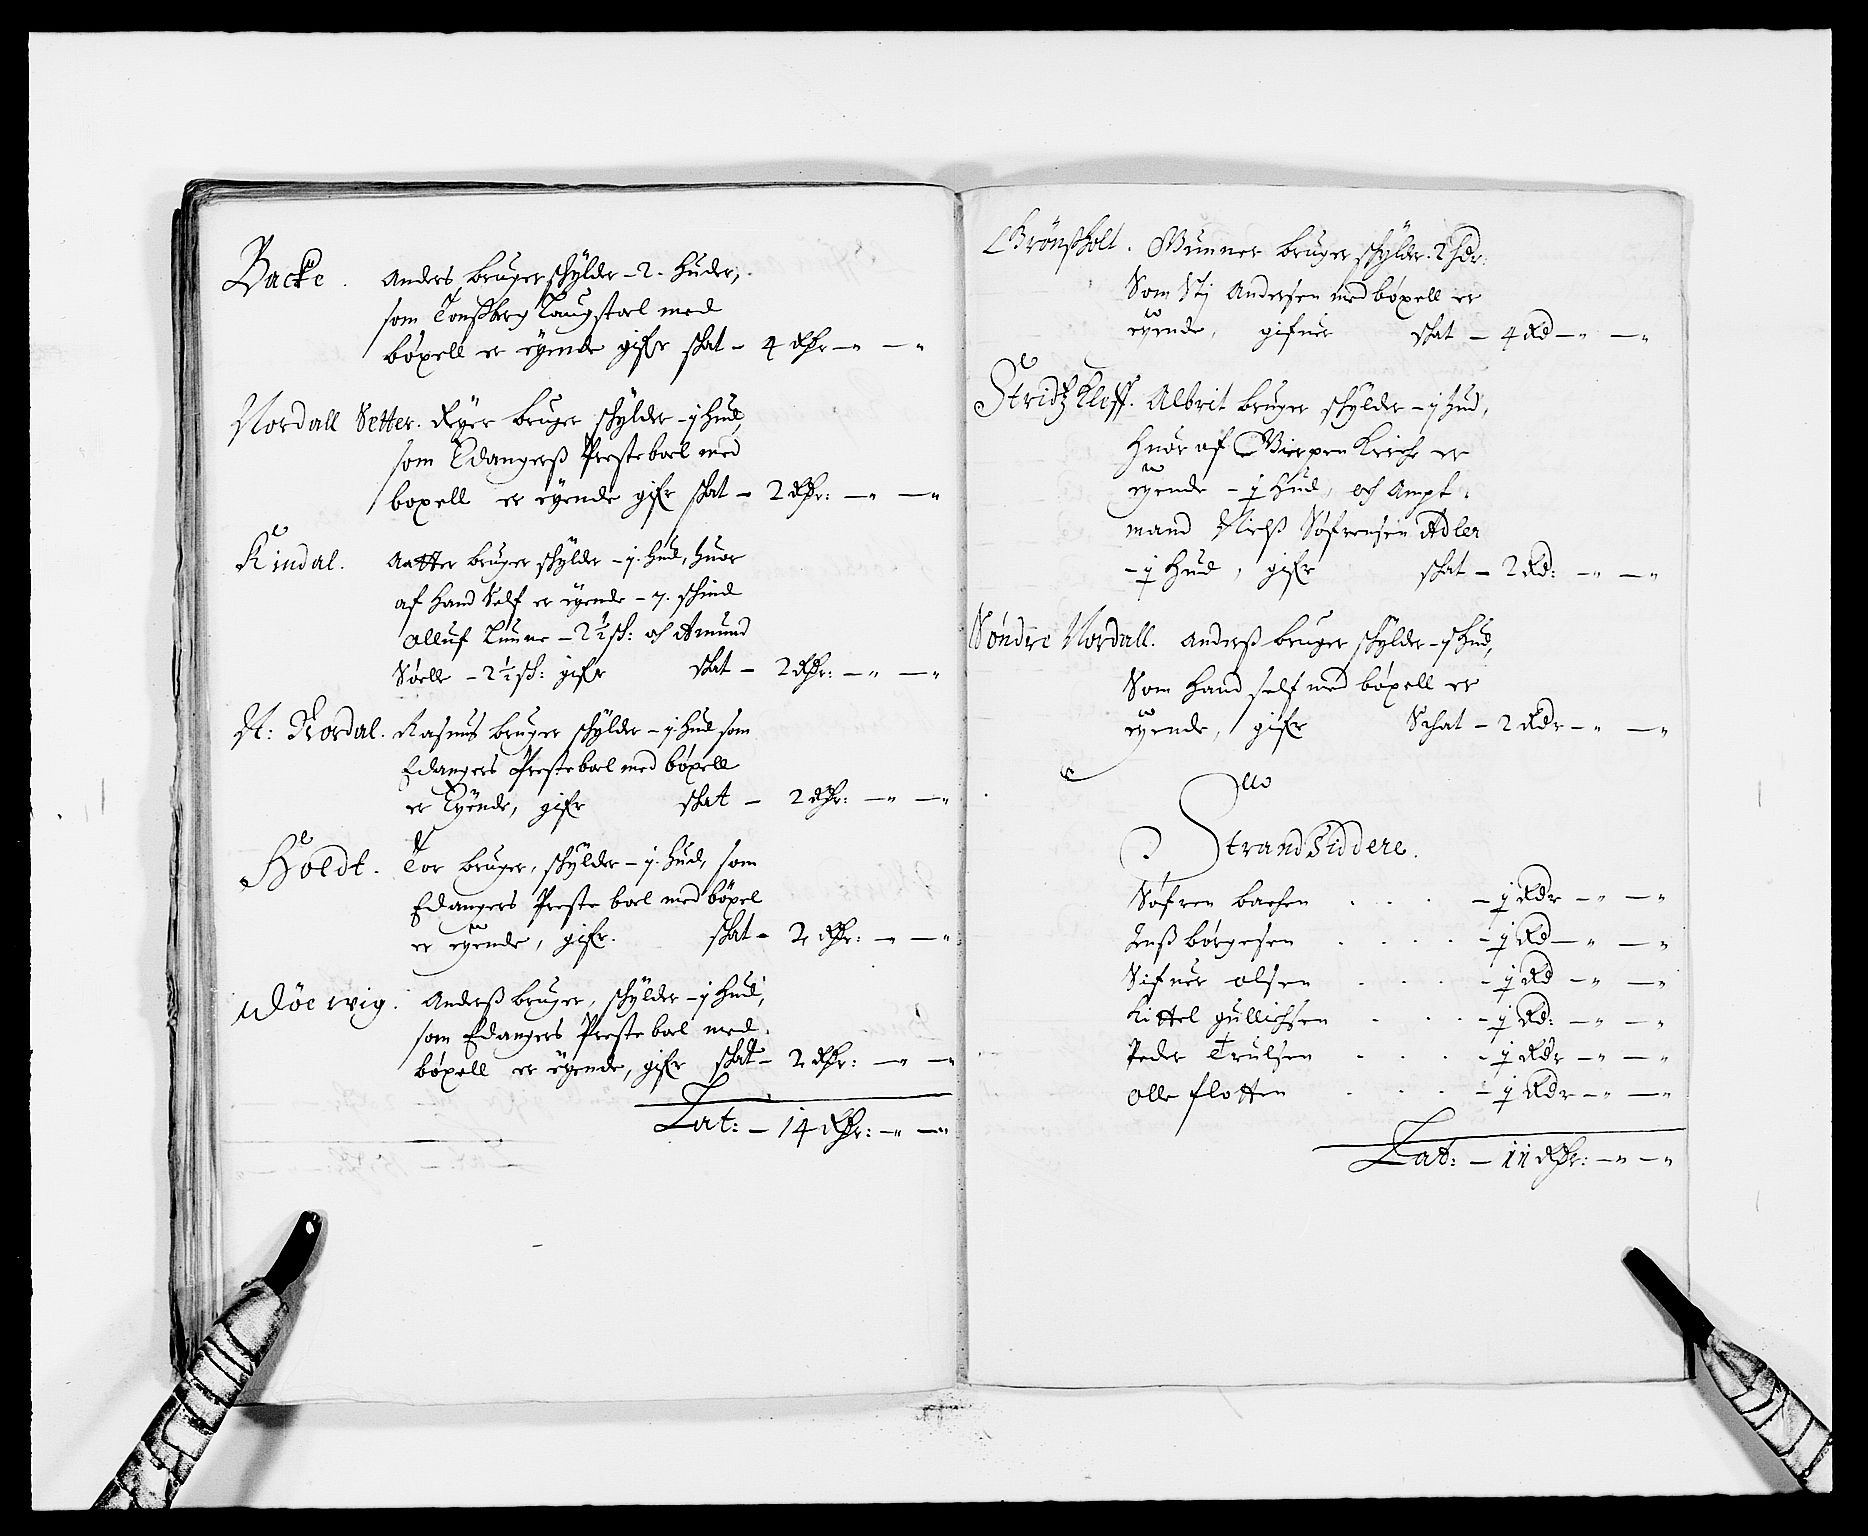 Backe . Anders bruger schylder – 2. huder,
som Tonsberg Laugstoel med
böxell er eyende gifr skat – 4 Rdr – " – "
Nordall Setter. Reyer bruger schylder – j hud,
som Edangerß Presteboel med
boxell er eyende gifr skat – 2 Rdr: – " – "
Kindal. Aatter bruger schylder – j. hud, huor
af hand Self er eyende – 7. schind
olluf Lunne – 2½ sch: och Amund
Söelle – 2½ sch: gifr skat – 2 Rdr: – " – "
N: Nordal. Rasmus bruger schylder – j. hud som
Edangers Presteboel med böxell
er Eyende, gifr skat – 2 Rdr: – " – "
Höldt. Tor bruger, schylder – j. hud, som
Edangers Preste boel med böxel
er eyende, gifr. skat – 2 Rdr: – " – "
Döe wig. Anderß bruger, schylder – j hud,
som Edangers Preste boel med
böxell er eyende, gifr skat – 2 Rdr: – " – "
Lat: – 14 Rdr: – " – "
Brönßholt. Gunner bruger schylder. 2 hdr:
Som Stj Andersen med böxell er
eyende, gifuer skat – 4 Rd – " – "
Stridtz Kleff. Albrit bruger schylder – j hud,
huor af Gierpen Kirche er
eyende – ½ hud, och Ampt:
mand Nielß Söfrensen Adler
– ½ hud, gifr skat – 2 Rd: – " – "
Söndre Nordall. Anderß bruger schylder – j hud,
Som hand self med böxell er
eyende, gifr Schat – 2 Rdr – " – "
Strand Siddere.
Söfren bachen . . . – j Rdr – " – "
Jenß börgesen . . . . – j Rd – " – "
Sifuer olsen . . . – j Rd – " – "
Kittel gullichsen . . . – j Rd: – " – "
Peder Trulsen . . . – j Rdr – " – "
olle flotten . . . – j Rdr – " – "
Lat: – 11 Rdr: – " – "